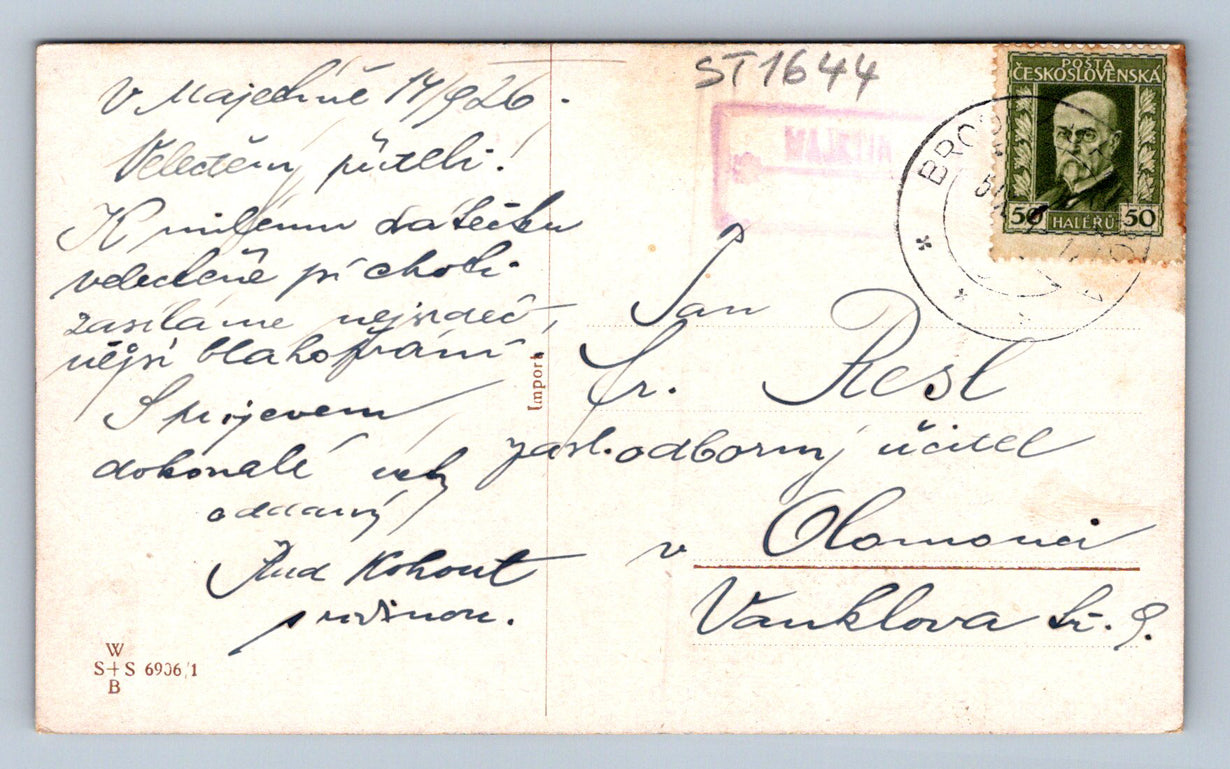 V Majetíně 14/9 26.
Veledůst. příteli!
K milému sňatečku
veledcěně pí choti
zasíláme nejsrdeč-
nější blahopřání.
S projevem
dokonalé úcty
oddaný
Rud Kohout
s rodinou.
W
S+S 6906/1
B
Import
ST1644
POŠTA
ČESKOSLOVENSKÁ
50 HALÉŘŮ 50
BRO
Pan
Fr. Resl
odborný učitel
v Olomouci
Vanklova